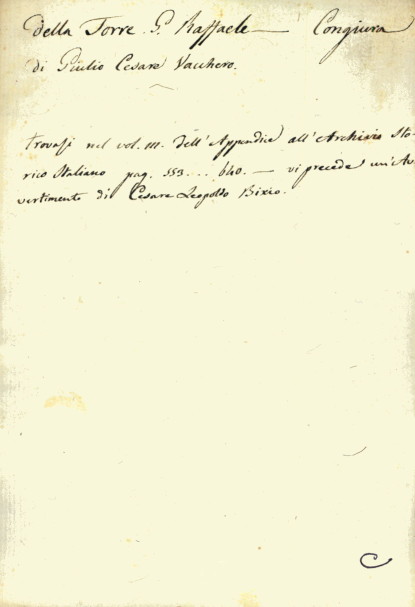 Della Torre G. Raffaele — Congiura
di Giulio Cesare Vacchero.
Trovasi nel vol. III. dell'Appendice all'Archivio Sto-
rico Italiano pag. 553... 640. — vi precede un'Av
vertimento di Cesare Leopoldo Bixio.
C